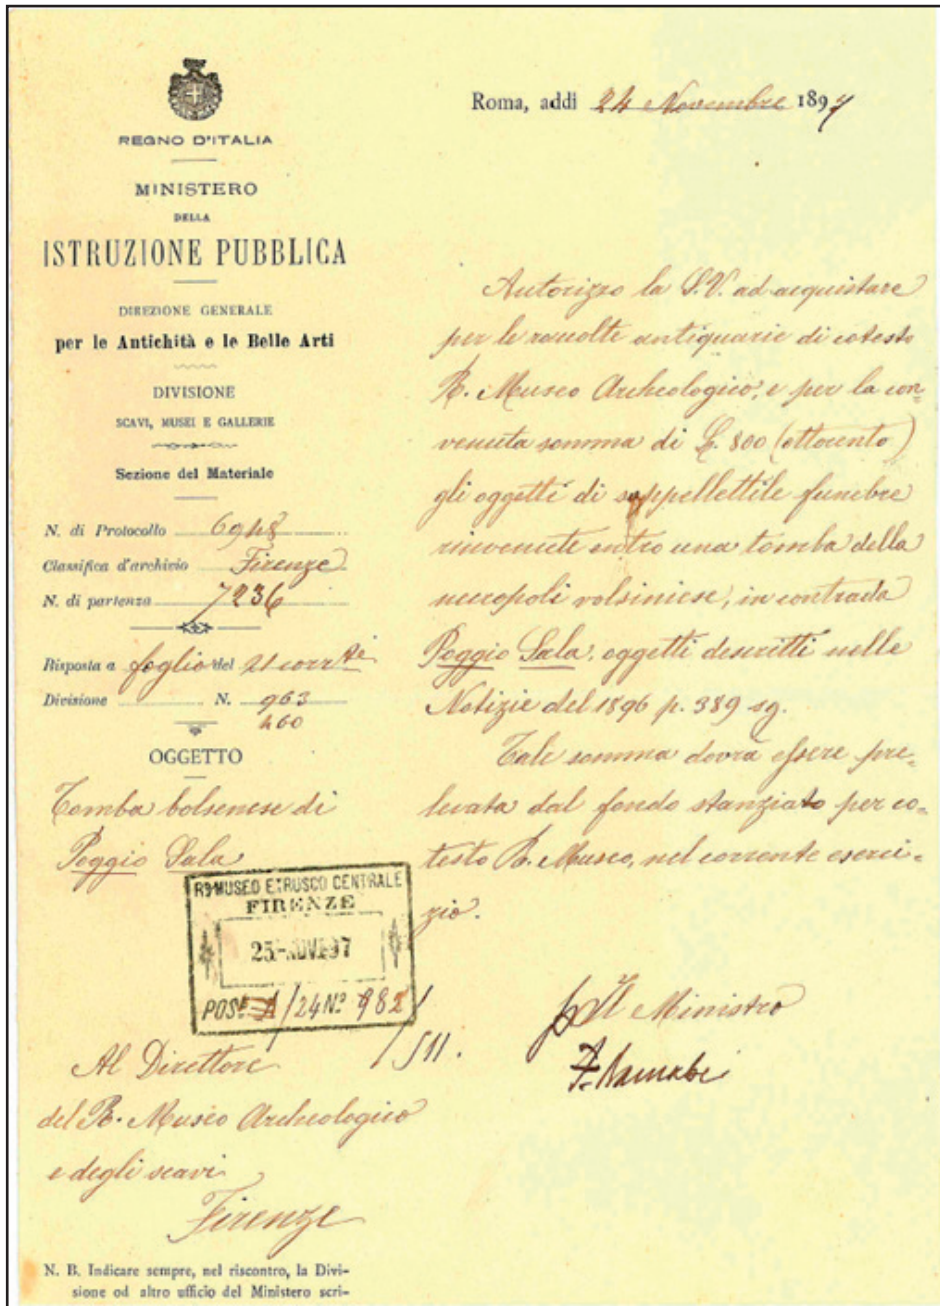 REGNO D'ITALIA
MINISTERO
DELLA
ISTRUZIONE PUBBLICA
DIREZIONE GENERALE
per le Antichità e le Belle Arti
DIVISIONE
SCAVI, MUSEI E GALLERIE
Sezione del Materiale
N. di Protocollo 6948
Classifica d'archivio Firenze
N. di partenza 7236
Risposta a foglio del 21 corr.te
Divisione N. 963
460
OGGETTO
Tomba bolsenese di
Poggio Sala
R. MUSEO ETRUSCO CENTRALE
FIRENZE
25 NOV 97
POS. /24 N.º 982
/511.
Al Direttore
del R. Museo Archeologico
e degli scavi
Firenze
N. B. Indicare sempre, nel riscontro, la Divi-
sione od altro ufficio del Ministero scri-
Roma, addì 24 Novembre 1897
Autorizzo la S.V. ad acquistare
per le raccolte antiquarie di cotesto
R. Museo Archeologico, e per la con-
venuta somma di L. 800 (ottocento)
gli oggetti di suppellettile funebre
rinvenute entro una tomba della
necropoli volsiniese, in contrada
Poggio Sala, oggetti descritti nelle
Notizie del 1896 p. 389 sg.
Tale somma dovrà essere pre-
levata dal fondo stanziato per co-
testo R. Museo, nel corrente eserci-
zio.
p Il Ministro
F. Barnabei